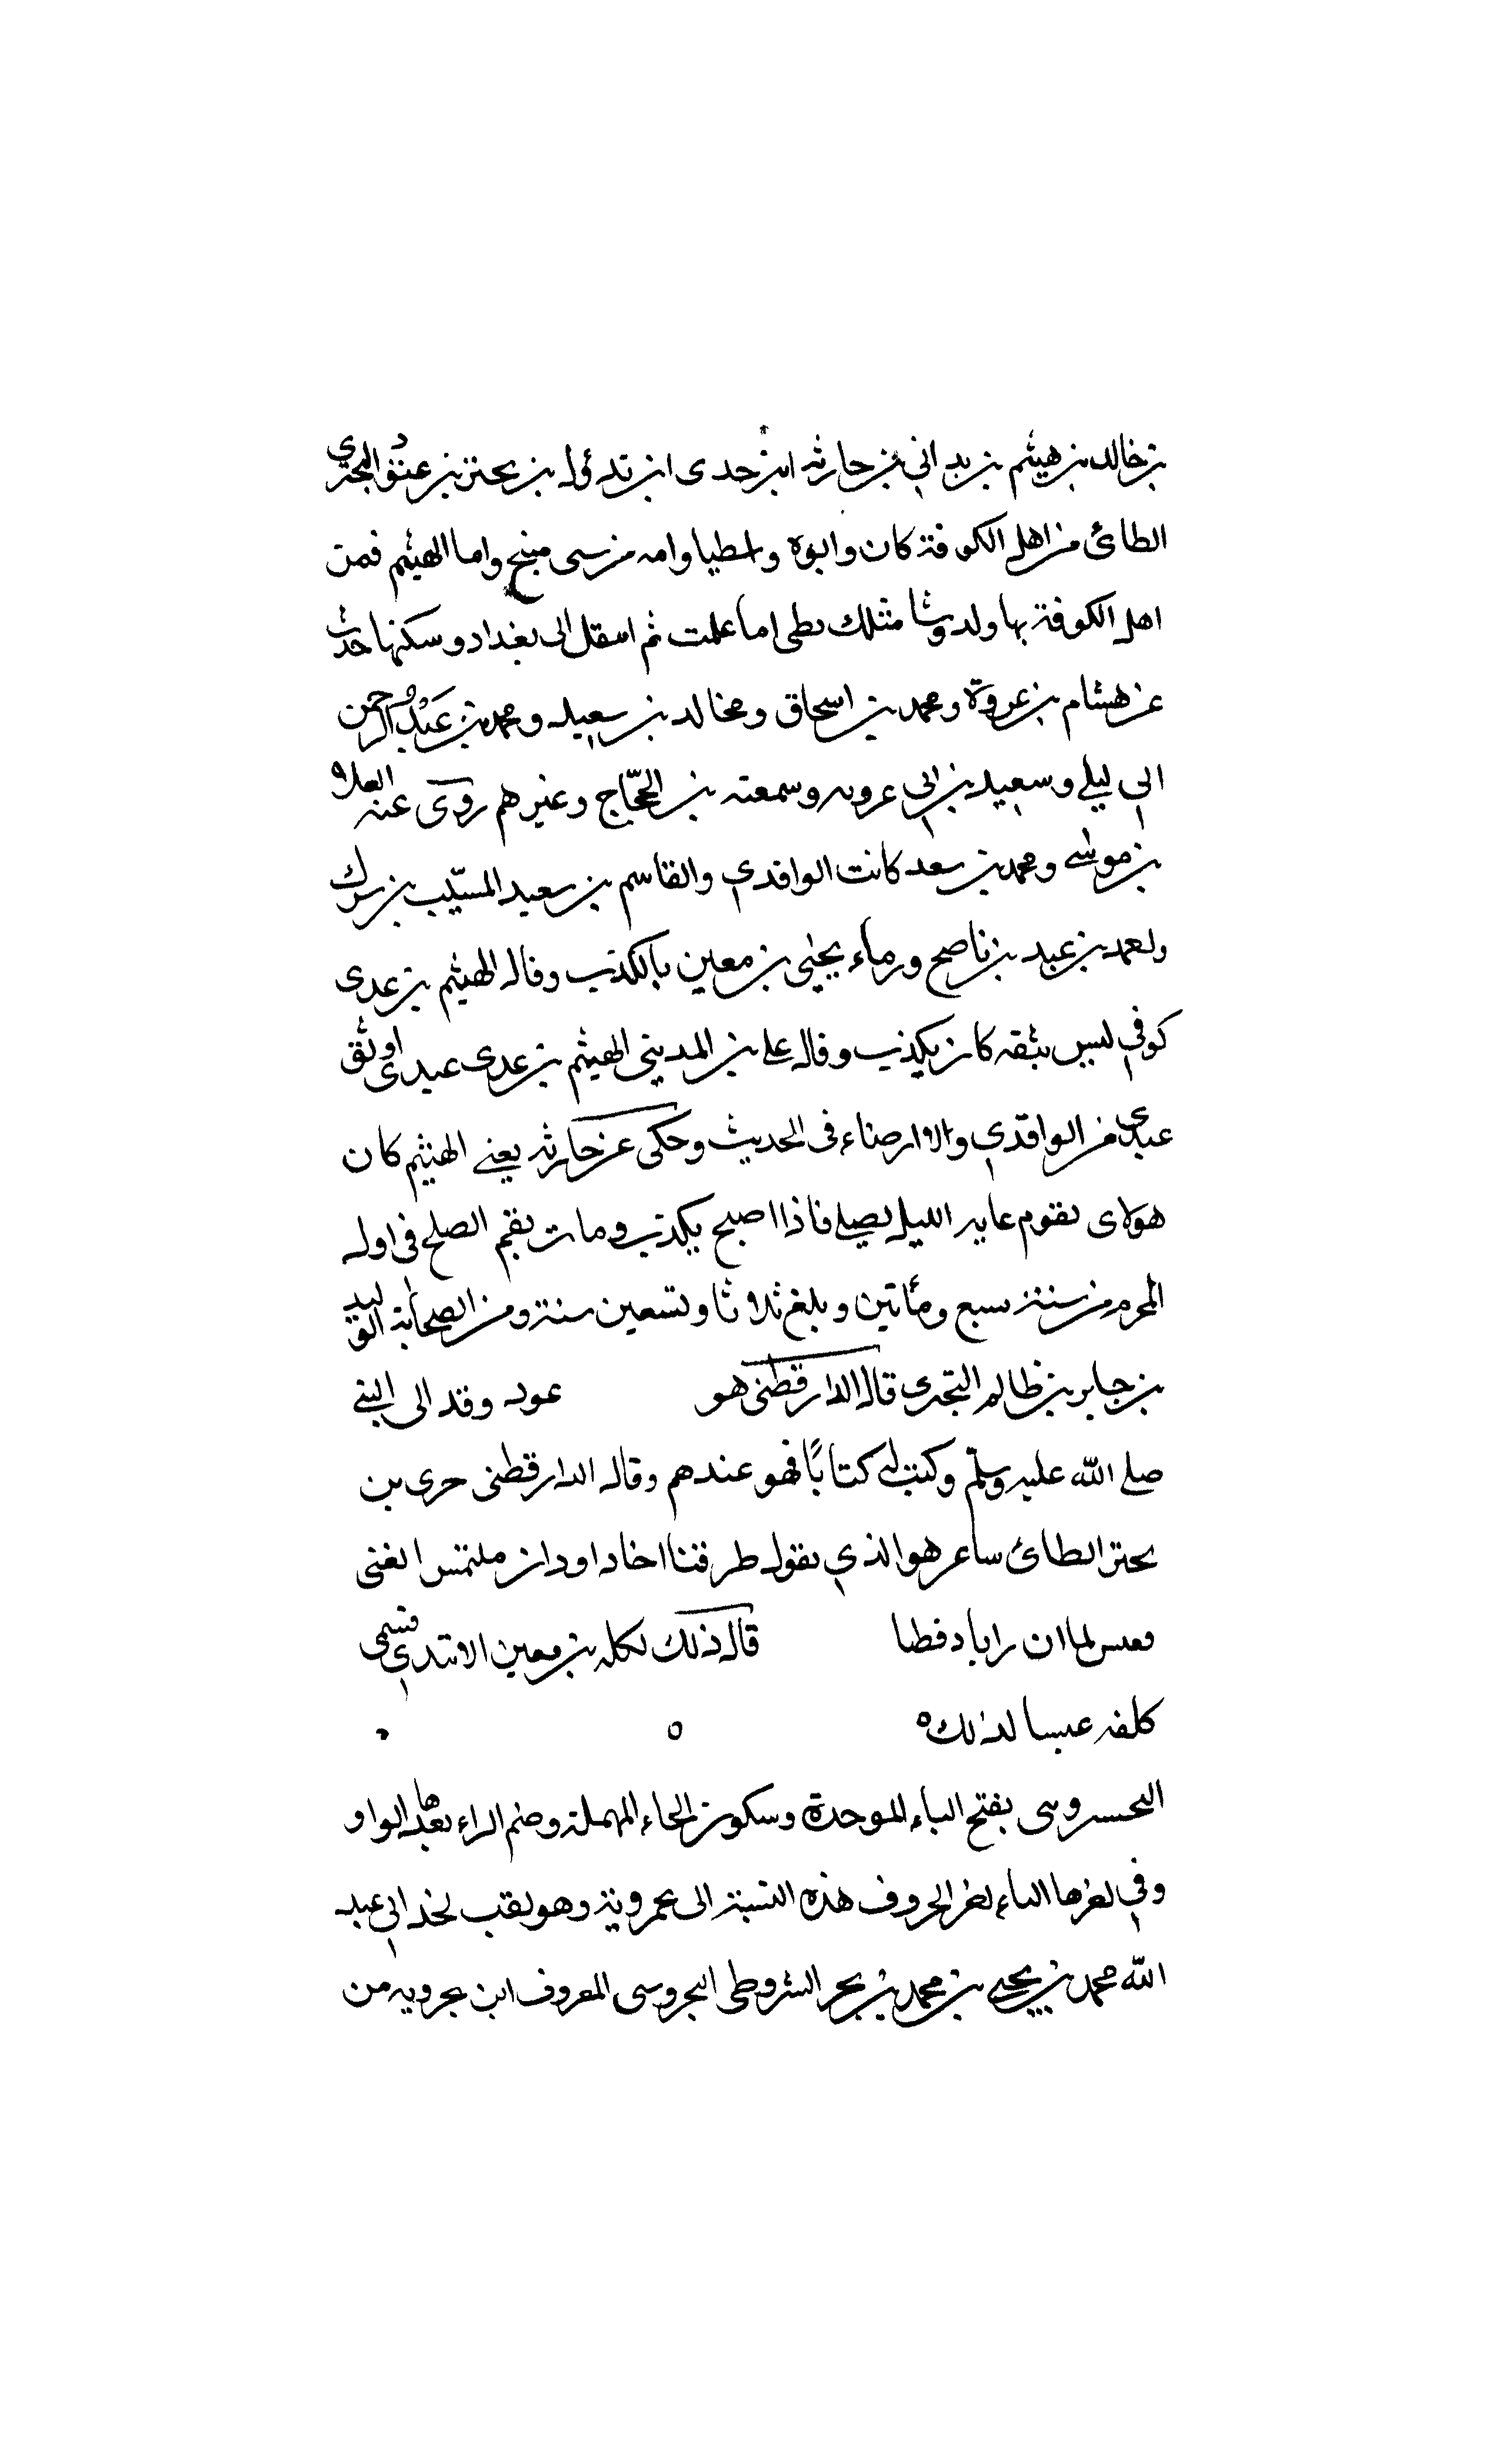 بن خالد بن هيثم بن يد اني بن حارثه ابن جدى ابن تدؤل بن بحتر بن عتود البحترى
الطائى من اهل الكوفة كان وابوه واسطيا وامه من سبى منبج واما الهيثم فمن
اهل الكوفة بها ولد ونشا مثلك بطى اما علمت ثم اسقل الى بغداد وسكنها حدث
عن هشام بن عروة ومحمد بن اسحاق ومخالد بن سعيد ومحمد بن عبد الرحمن
ابي ليلى وسعيد بن ابي عروبه وسمعته بن الحجّاج وغيرهم روى عنه العلاء
بن موسى ومحمد بن سعد كاتب الواقدي والقاسم بن سعيد المسيّب بن شريك
ولعمد بن عبيد بن ناصح ورماء يحيى بن معين بالكذب وقال الهيثم بن عدى
كوفي ليس بثقه كان يكذب وقال على بن المدينى الهيثم بن عدى عندى اوثق
عندي من الواقدي والا ارضاء فى الحديث وحكى عن جارثه يعنى الهيثم كان
هولاى يقوم عايه الليل يصلى فاذا اصبح يكذب ومات بفم الصلح فى اول
المحرم من سنة سبع ومأتين وبلغ ثلاثا وتسعين سنة ومن الصحابة الوليد
بن جابر بن ظالم البحترى قال الدارقطنى هو عود وفد الى النبى
صلى الله عليه وسلّم وكتب له كتابًا فهو عندهم وقال الدارقطنى حرى بن
بحتر الطائى ساعر هو الذي يقول طرفتنا اخا داود ان ملتمس الغنى
قال ذلك لكله بن معين الاسدى فسمى
كلفه عبسا لذلك ٥ ٥
البحسروسى بفتح الباء الموحدة وسكون الحاء المهملة وضم الراء بعدها الواو
وفي اخرها الياء اخر الحروف هذه النسبة الى بحروية وهو لقب لجد ابي عبد
الله محمد بن يحيى بن محمد بن بحر الشروطى البحروسى المعروف ابن بحرويه من